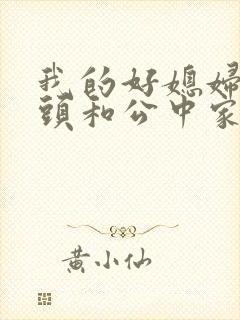 我的好媳婦
頭和公中家
黄小仙